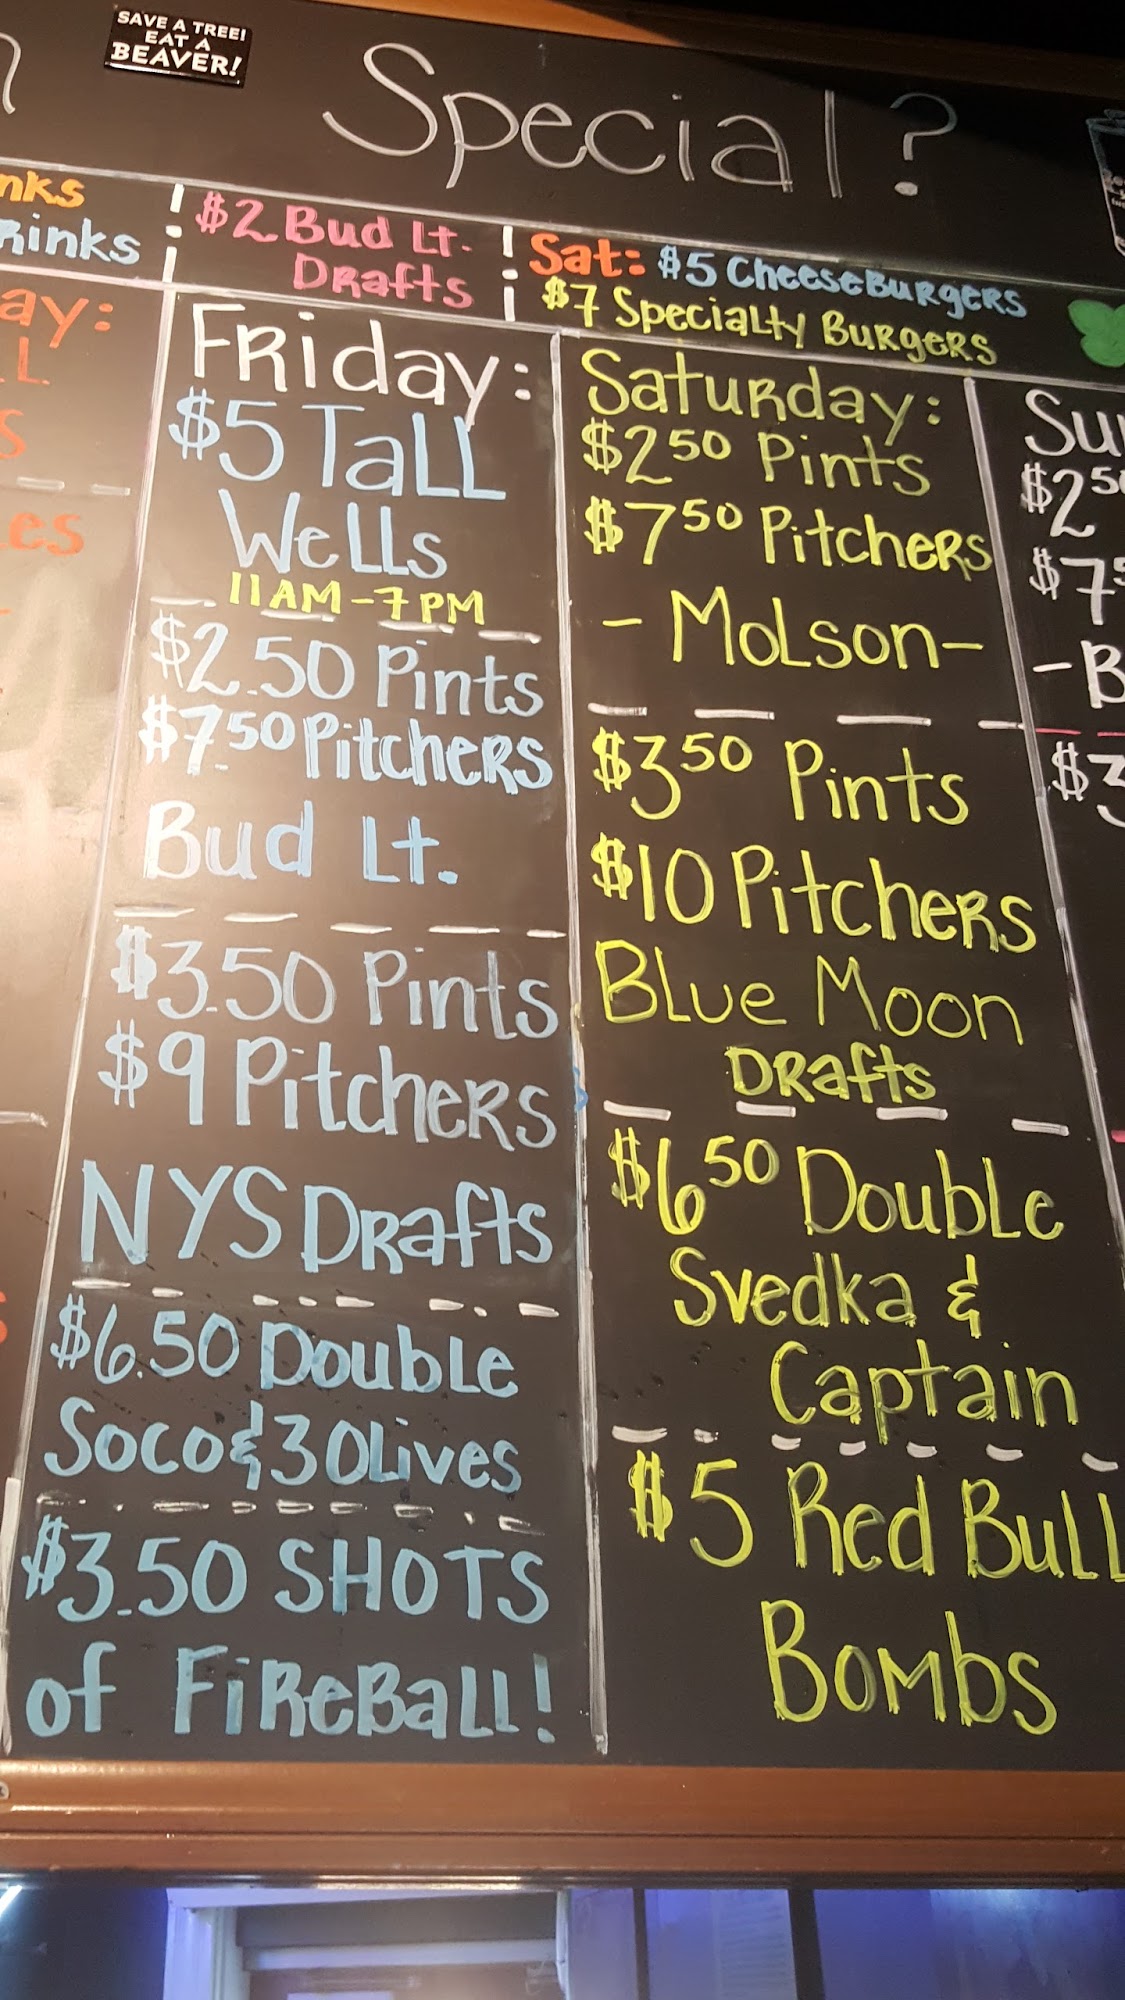 SAVE A TREE!
EAT A
BEAVER!
Special?
$2 Bud Lt.
Drafts
Sat: $5 CheeseBurgers
$7 Specialty Burgers
Friday:
$5 Tall
Wells
11AM-7PM
$2.50 Pints
$7.50 Pitchers
Bud Lt.
$3.50 Pints
$9 Pitchers
NYS Drafts
$6.50 Double
Soco & 3 Olives
$3.50 SHOTS
of FireBall!
Saturday:
$2 50 Pints
$7 50 Pitchers
- Molson -
$3 50 Pints
$10 Pitchers
Blue Moon
Drafts
$6 50 Double
Svedka &
Captain
$5 Red Bull
Bombs